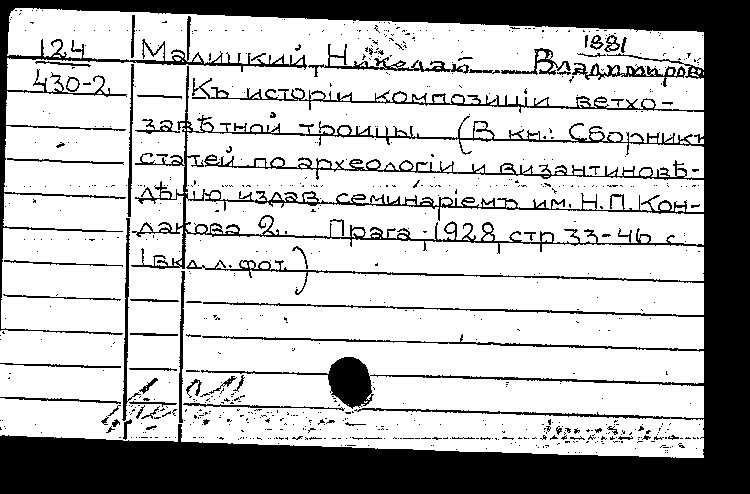 1881
124 Малицкий, Николай Владимиров
430-2 Къ исторіи композиціи ветхо-
завѣтной троицы. (В кн.: Сборникъ
статей по археологіи и византиновѣ-
дѣнію, издав. семинаріемъ им. Н.П. Кон-
дакова 2. Прага, 1928, стр 33-46 с
1 вкл. л. фот.)